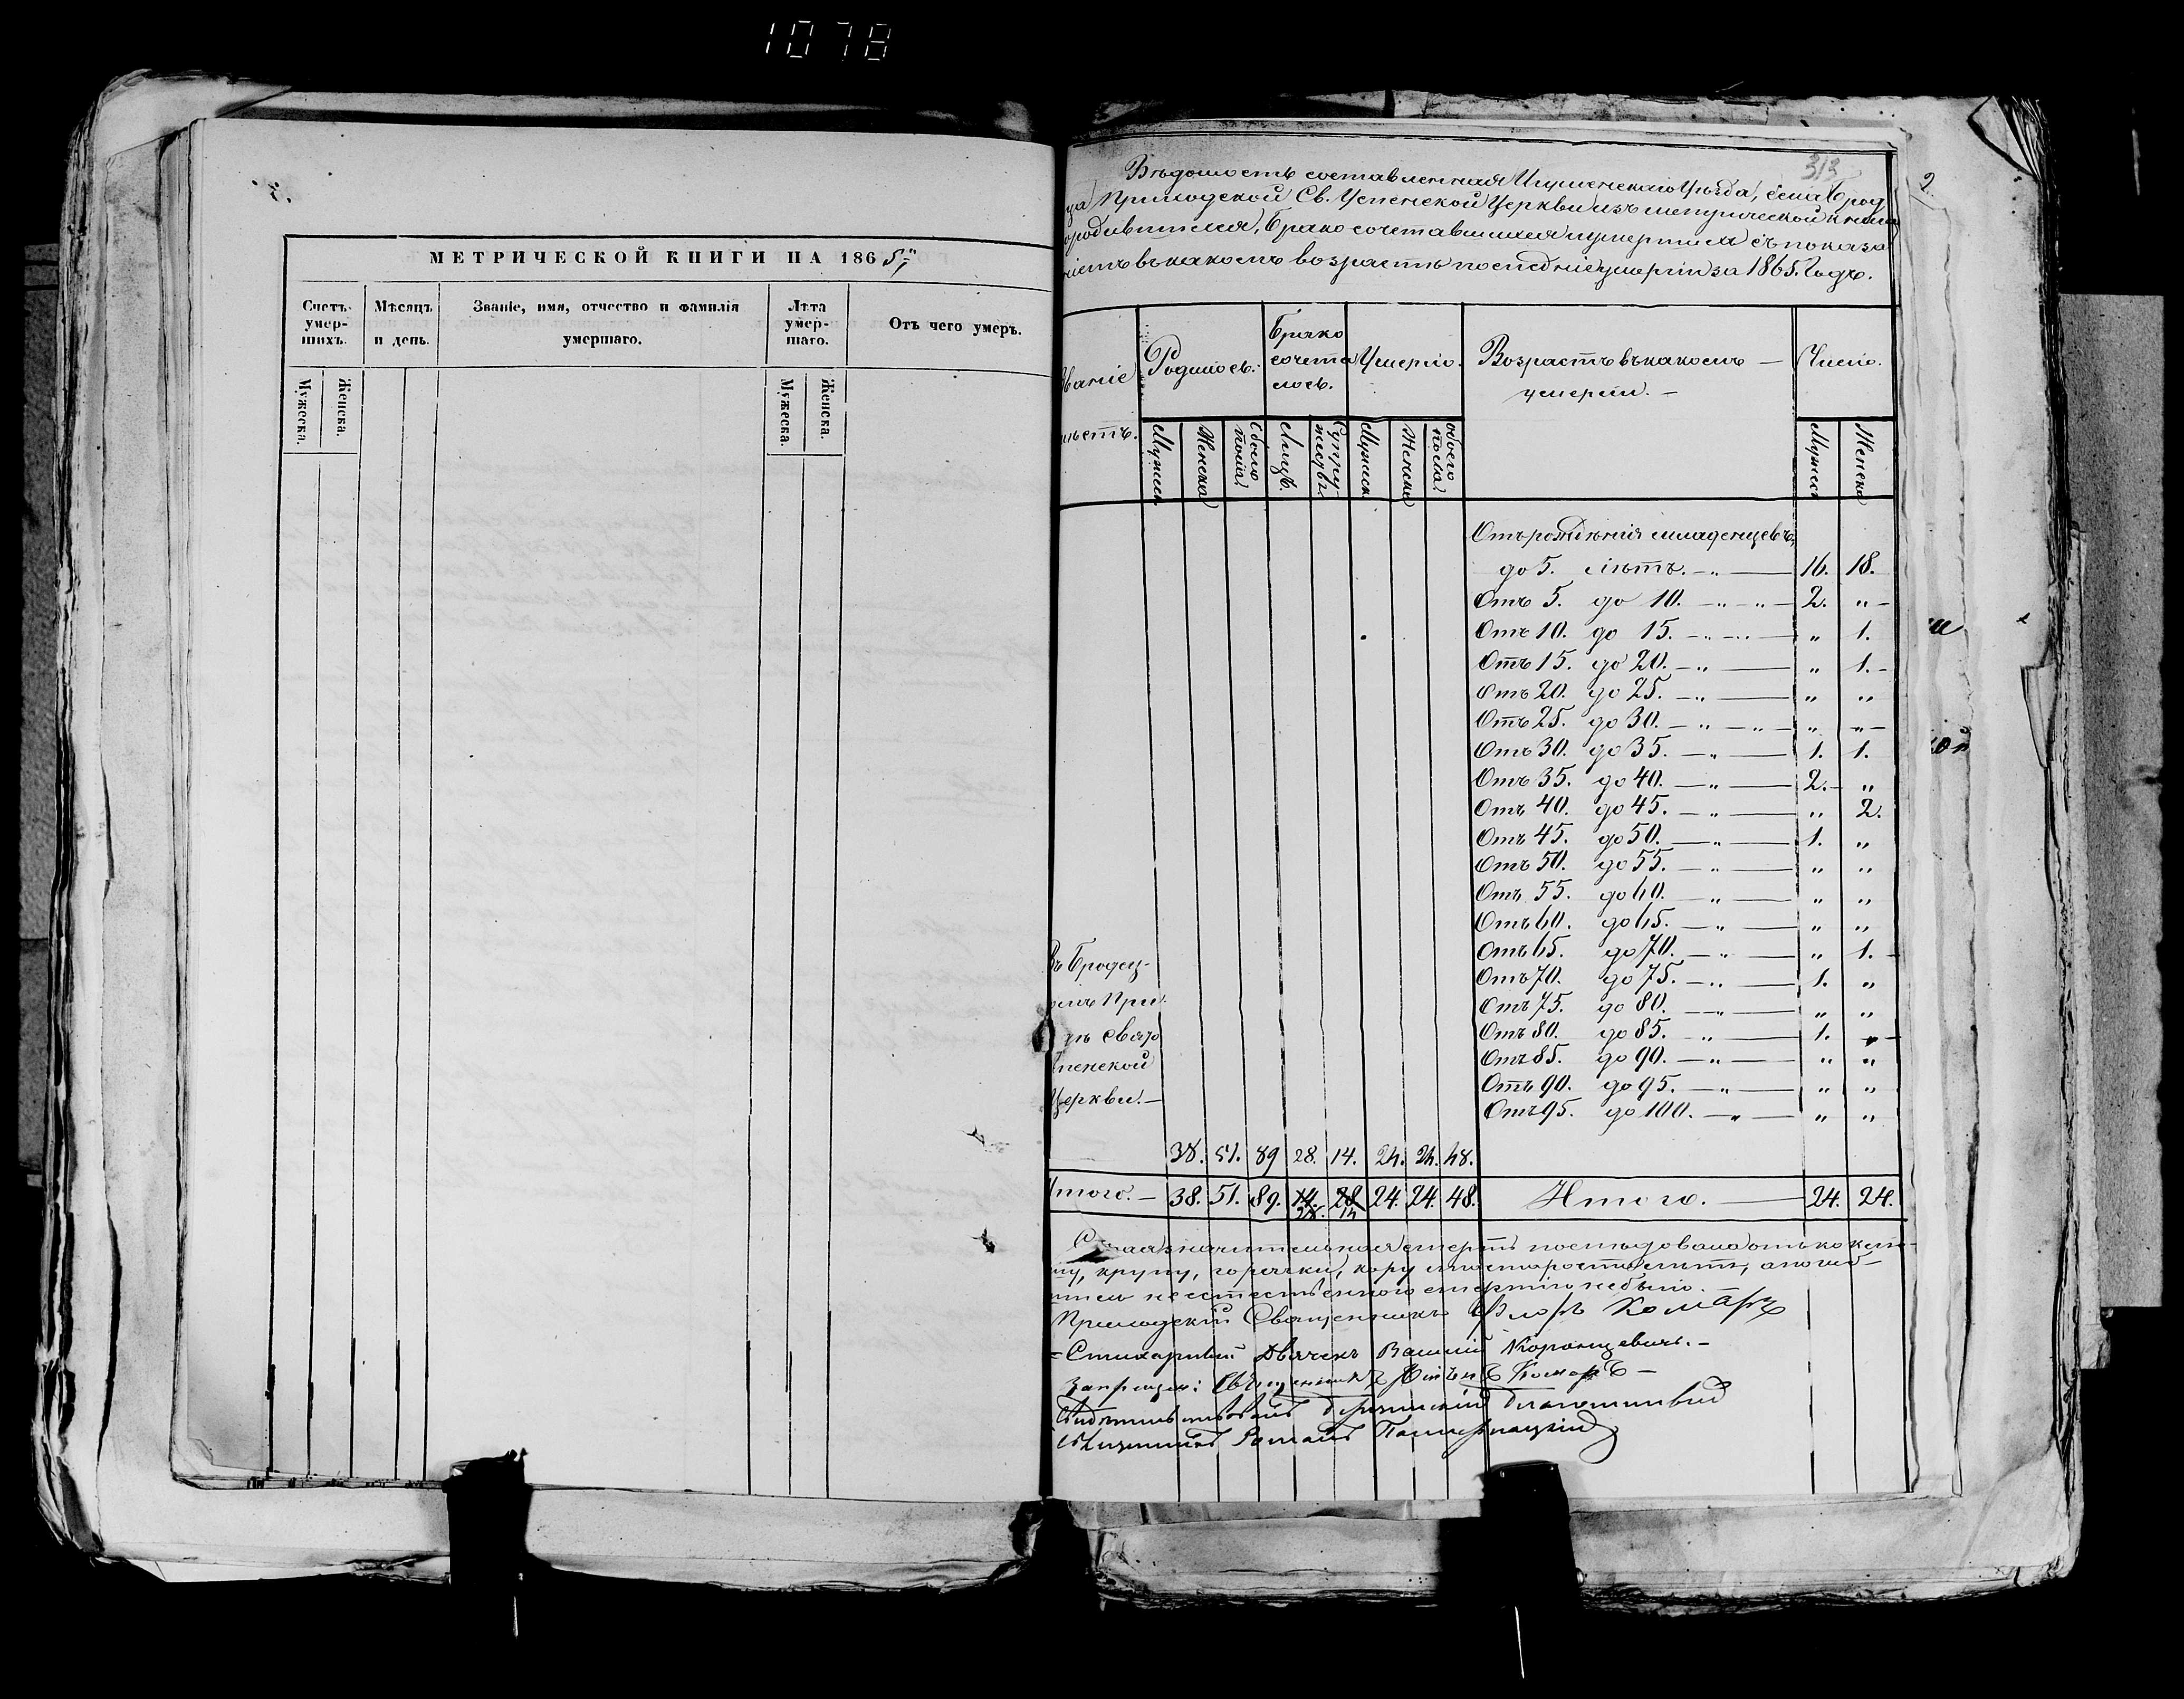 1078
МЕТРИЧЕСКОЙ КНИГИ НА 1865
Счетъ умер-шихъ. Мѣсяцъ и день. Званіе, имя, отчество и фамилія умершаго. Лѣта умер-шаго. Отъ чего умеръ.
Мужеска. Женска. Мужеска. Женска.
313
Вѣдомость составленная Игуменскаго Уѣзда, села Брод
ца Приходской Св. Успенской Церкви изъ метрической книги
о родившихся, Брако сочетавшихся и умершихъ съ показа
ніемъ въ какомъ возрастѣ последніе умерли за 1865. Годъ.
Званіе Родилось. Брако сочета лось. Умерло. Возрастъ въ какомъ — умерли. — Число.
мѣстъ. Мужеск Женска Обоего пола. Лицъ. Супружествъ Мужеск Женска обоего пола. Мужеск Женска
Отъ рожденія младенцевъ
до 5. лѣтъ. 16. 18.
Отъ 5. до 10. 2. „
Отъ 10. до 15. „ 1.
Отъ 15. до 20. „ 1.
Отъ 20. до 25. „ „
Отъ 25. до 30. „ „
Отъ 30. до 35. 1. 1.
Отъ 35. до 40. 2. „
Отъ 40. до 45. „ 2.
Отъ 45. до 50. 1. „
Отъ 50. до 55. „ „
Отъ 55. до 60. „ „
Отъ 60. до 65. „ „
Отъ 65. до 70. „ 1.
Отъ 70. до 75. 1. „
Отъ 75. до 80. „ „
Отъ 80. до 85. 1. „
Отъ 85. до 90. „ „
Отъ 90. до 95. „ „
Отъ 95. до 100. „ „
Въ Бродец-
комъ При
дѣ Свято
пенской
Церкви. —
38. 51. 89 28. 14. 24. 24. 48.
Итого. — 38. 51. 89. 14. 28 24. 24. 48. Итого. 24. 24.
28. 14
значительная смерть последовала отъ коклю
шу, крупу, горячки, кору и старости лѣтъ, а
неестественною смертію небыло. —
Приходскій Священникъ Флоръ Комаръ
Стихарный Дьячекъ Василій Коронцевичъ. —
Священникъ Комаръ —
Благочинный
Священникъ Романъ